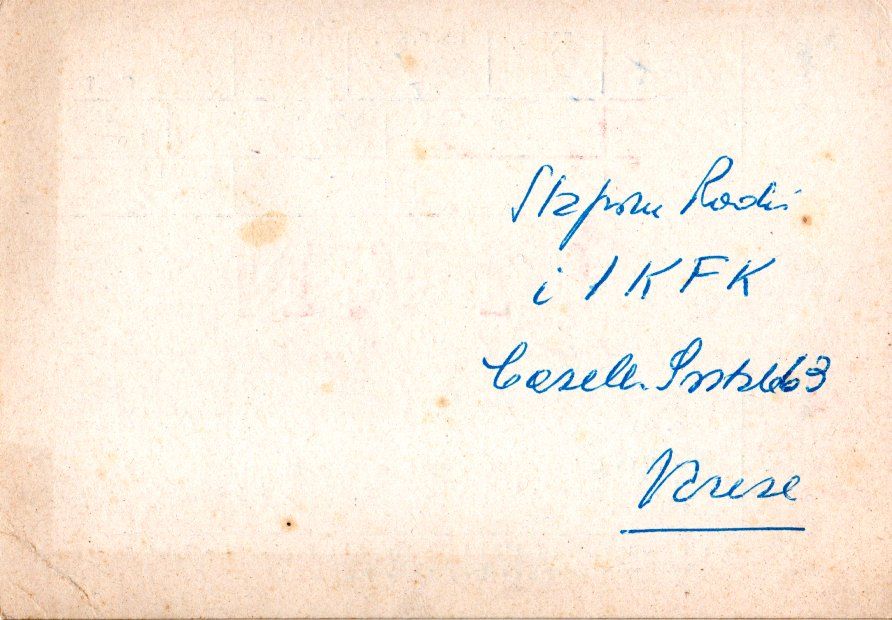 Stazione Radio
i 1 K F K
Casella Postale 63
Varese